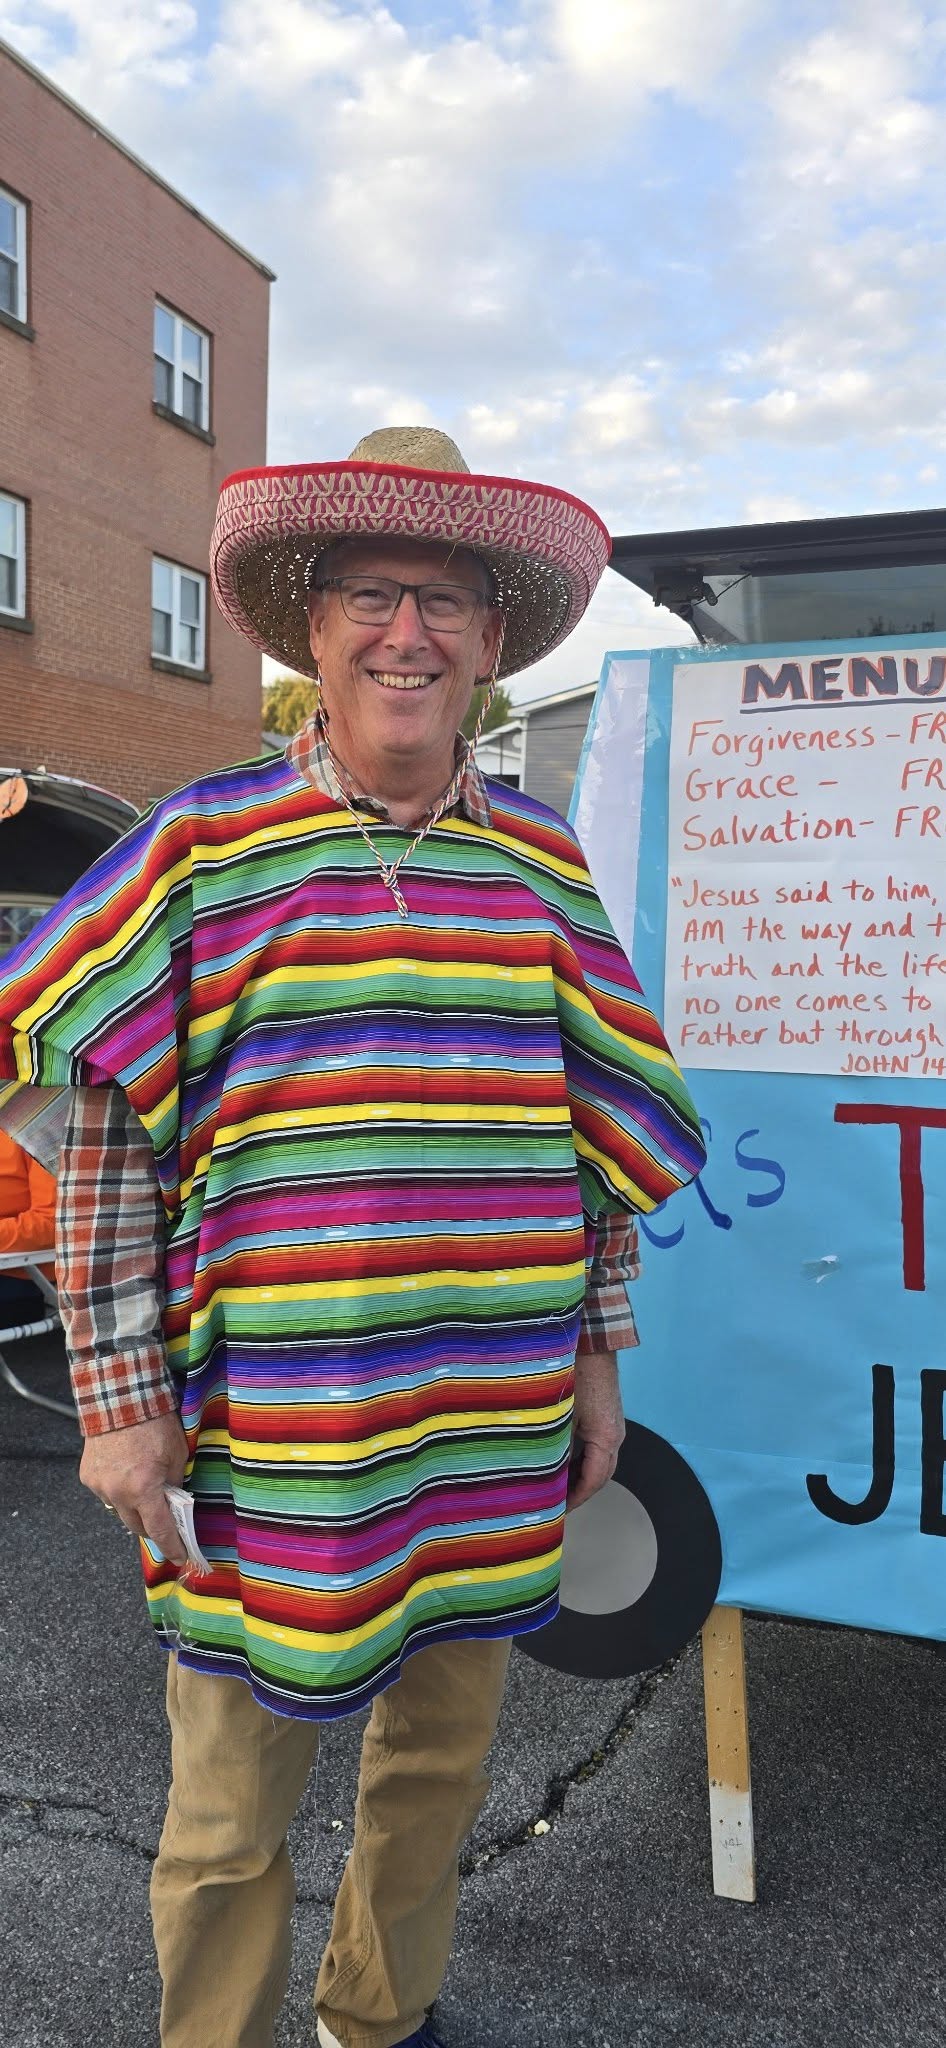 MENU
Forgiveness - FR
Grace - FR
Salvation - FR
"Jesus said to him,
AM the way and t
truth and the life
no one comes to
Father but through
JOHN 14
's
T
JE